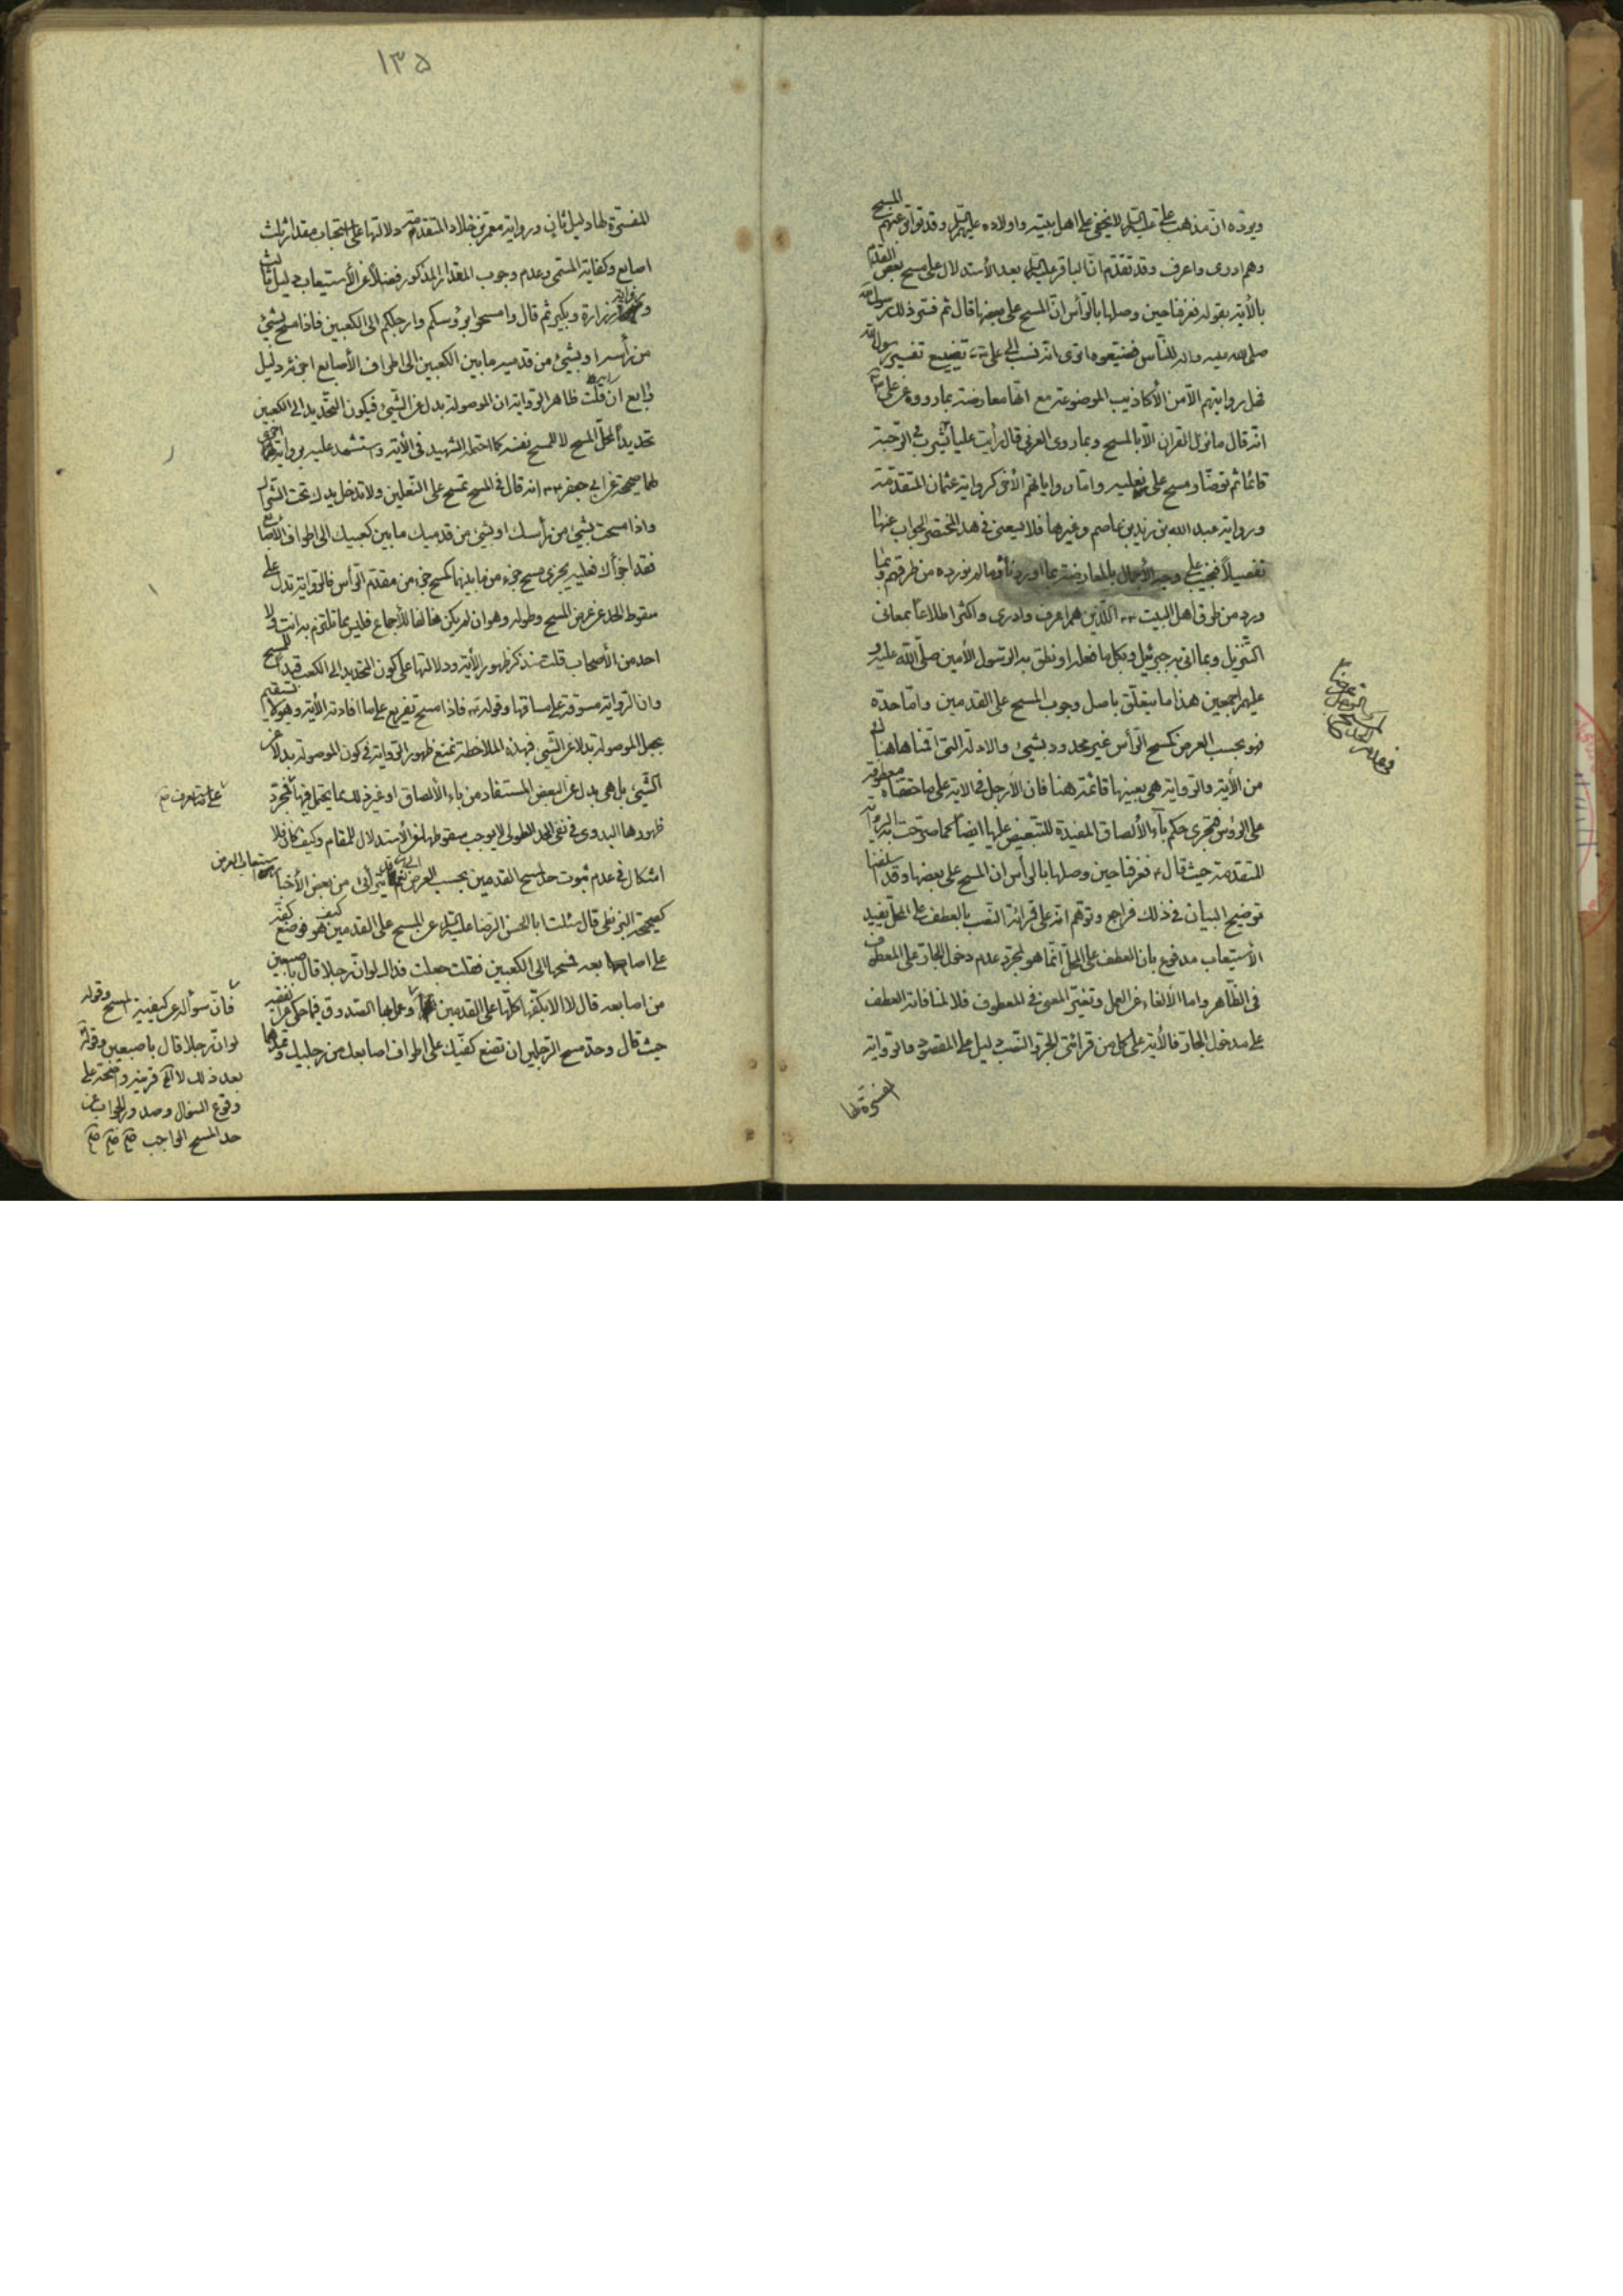 ويؤيده ان مذهب علي عليه السلام لا يخفى على اهل بيته واولاده عليهم السلام وقد تواتر عنهم المسح
وهم ادرى واعرف وقد تقدم ان الباقر عليه السلام بعد الأستدلال على مسح بعض القدم
بالأية بقوله فعرفنا حين وصلها بالرأس ان المسح على بعضها قال ثم فسر ذلك رسول الله
صلى الله عليه واله للناس فضيعوه اترى انه نسب الى علي تضييع تفسير رسول الله
فهل روايتهم الا من الأكاذيب الموضوعة مع انها معارضة بما رووه عن علي
انه قال ما نزل القران الا بالمسح وبما روى العرني قال رأيت عليا يشرب في الرحبة
قائما ثم توضأ ومسح على نعليه واما رواياتهم الأخر كرواية عثمان المتقدمة
ورواية عبد الله بن زيد بن عاصم وغيرها فلا يسعني في هذا المختصر الجواب عنها
تفصيلاً فنجيب على وجه الأجمال بالمعارضة بما اوردناه وما لم نورده من طرقهم وبما
ورد من طرق اهل البيت الذين هم اعرف وادرى واكثر اطلاعا بمعاني
التنزيل وبما اتى به جبرئيل وبكل ما فعله او نطق به الرسول الأمين صلى الله عليه و
عليهم اجمعين هذا ما يتعلق باصل وجوب المسح على القدمين واما حده
فهو بحسب العرض كمسح الرأس غير محدود بشيئ والادلة التي اقمناها هناك
من الأية والرواية هي بعينها قائمة هنا فان الأرجل في الاية على ما حققناه معطوفة
على الرؤس فيجري حكم باء الألصاق المفيدة للتبعيض عليها ايضاً كما صرحت به الرواية
المتقدمة حيث قال فعرفنا حين وصلها بالرأس ان المسح على بعضها وقد اسلفنا
توضيح البيان في ذلك فراجع وتوهم انه على قرائة النصب بالعطف على المحل يفيد
الأستيعاب مدفوع بان العطف على المحل انما هو لمجرد عدم دخول الجار على المعطوف
في الظاهر واما الألغاء عن العمل وتغير المعنى في المعطوف فلا لمنافاته العطف
على مدخول الجار فالأية على كل من قرائتي الجر والنصب دليل على المقصود والرواية
المفسرة لها
١٣٥
المفسرة لها دليل ثاني ورواية معمر بن خلاد المتقدمة دلالتها على استحباب مقدار ثلث
اصابع وكفاية المسمى وعدم وجوب المقدار المذكور فضلاً عن الأستيعاب دليل ثالث
ورواية زرارة وبكير ثم قال وامسحوا برؤسكم وارجلكم الى الكعبين فاذا مسح بشيئ
من رأسه او بشيئ من قدميه ما بين الكعبين الى اطراف الأصابع اجزئه دليل
رابع ان قلت ظاهر الرواية ان الموصولة بدل عن الشيئ فيكون التحديد الى الكعبين
تحديداً لمحل المسح لا للمسح نفسه كما احتمله الشهيد في الأية واستشهد عليه برواية اخرى
لهما صحيحة عن ابي جعفر انه قال في المسح تمسح على النعلين ولا تدخل يدك تحت الشراك
واذا مسحت بشيئ من رأسك او بشيئ من قدميك ما بين كعبيك الى اطراف الأصابع
فقد اجزأك فعليه يجزي مسح جزء من ما بينهما كمسح جزء من مقدم الرأس فالرواية تدل على
سقوط الحد عن عرض المسح وطوله وهو ان لم يكن مخالفا للأجماع فليس مما تلتزم به انت ولا
احد من الأصحاب قلت سنذكر ظهور الأية ودلالتها على كون التحديد الى الكعب قيدا للمسح
وان الرواية مسوقة على مساقها وقوله فاذا مسح تفريع على ما افادته الأية وهو لا يستقيم
بجعل الموصولة بدلا عن الشيئ فبهذه الملاحظة تمنع ظهور الرواية في كون الموصولة بدلا عن
الشيئ بل هي بدل عن البعض المستفاد من باء الألصاق او غير ذلك مما يحتمل فيها فمجرد
ظهورها البدوي في نفي الحد الطولي لا يوجب سقوطها عن الأستدلال للمقام وكيف كان فلا
اشكال في عدم ثبوت حد لمسح القدمين بحسب العرض نعم يترائى من بعض الأخبار
استيعاب العرض
كصحيحة البزنطي قال سئلت ابا الحسن الرضا عليه السلام عن المسح على القدمين كيف هو فوضع كفه
على اصابعه فمسحها الى الكعبين فقلت جعلت فداك لو ان رجلا قال باصبعين
من اصابعه قال لا الا بكفه كلها على القدمين وعمل بها الصدوق فيما حكى عن الفقيه
حيث قال وحد مسح الرجلين ان تضع كفيك على اطراف اصابعك من رجليك وتمدها
فان سؤاله عن كيفية المسح وقوله
لو ان رجلا قال باصبعين وقوله
بعد ذلك لا الا قرينة واضحة على
وقوع السؤال وصدور الجواب عن
حد المسح الواجب صح صح صح